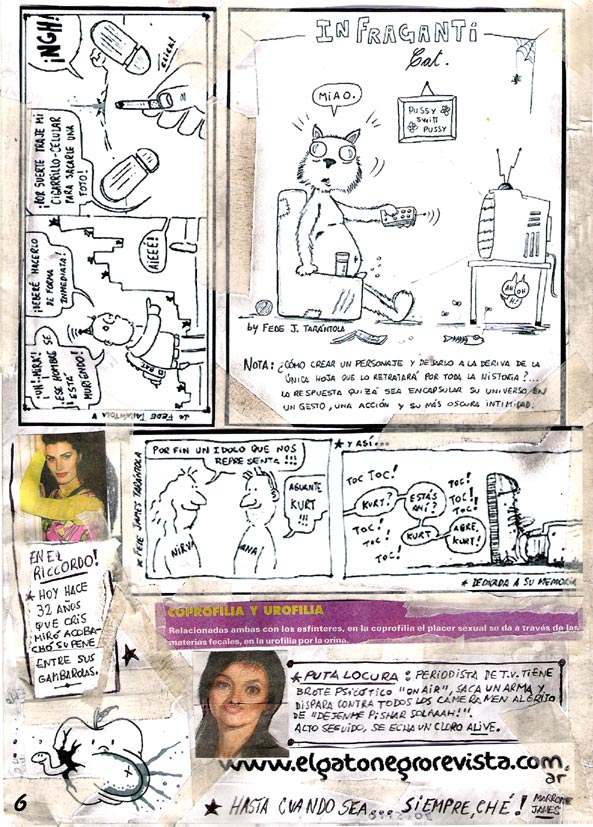 ¡NGH!
¡CLICK!
¡POR SUERTE TRAJE MI
CIGARRILLO-CELULAR
PARA SACARLE UNA
FOTO!
¡AIEEÉ!
¡DEBERÉ HACERLO
DE FORMA
INMEDIATA!
ESE HOMBRE SE
¡ESTÁ
MURIENDO!
FEDE TARÁNTOLA
IN FRAGANTI
Cat.
MIAO.
PUSSY
SWITT
PUSSY
AH OH
H!
by FEDE J. TARÁNTOLA
NOTA: ¿CÓMO CREAR UN PERSONAJE Y DEJARLO A LA DERIVA DE LA
ÚNICA HOJA QUE LO RETRATARÁ POR TODA LA HISTORIA?...
LA RESPUESTA QUIZÁ SEA ENCAPSULAR SU UNIVERSO EN
UN GESTO, UNA ACCIÓN Y SU MÁS OSCURA INTIMIDAD.
★ FEDE JAMES TARÁNTOLA
POR FIN UN IDOLO QUE NOS
REPRESENTA!!!
AGUANTE
KURT
!!!
NIRV
ANA!
★ Y ASÍ...
TOC TOC!
KURT?
TOC!
TOC!
TOC!
ESTÁS
AHÍ?
KURT
TOC!
TOC!
TOC!
ABRE,
KURT!
★ DEDICADA A SU MEMORIA
EN EL
RICCORDO!
★ HOY HACE
32 AÑOS
QUE CRIS
MIRÓ ACOBA-
CHÓ SU PENE
ENTRE SUS
GAMBAROLAS.
COPROFILIA Y UROFILIA
Relacionadas ambas con los esfínteres, en la coprofilia el placer sexual se da a través de las
materias fecales, en la urofilia por la orina.
★PUTA LOCURA: PERIODISTA DE T.V. TIENE
BROTE PSICÓTICO "ON AIR", SACA UN ARMA Y
DISPARA CONTRA TODOS LOS CAMERAMEN AL GRITO
DE "DEJENME PISHAR SOLAAAH!!".
ACTO SEGUIDO, SE ECHA UN CLORO ALIVE.
www.elgatonegrorevista.com.
ar
6
★ HASTA CUANDO SEA... SIEMPRE, CHÉ!
MARRONE
JAMES